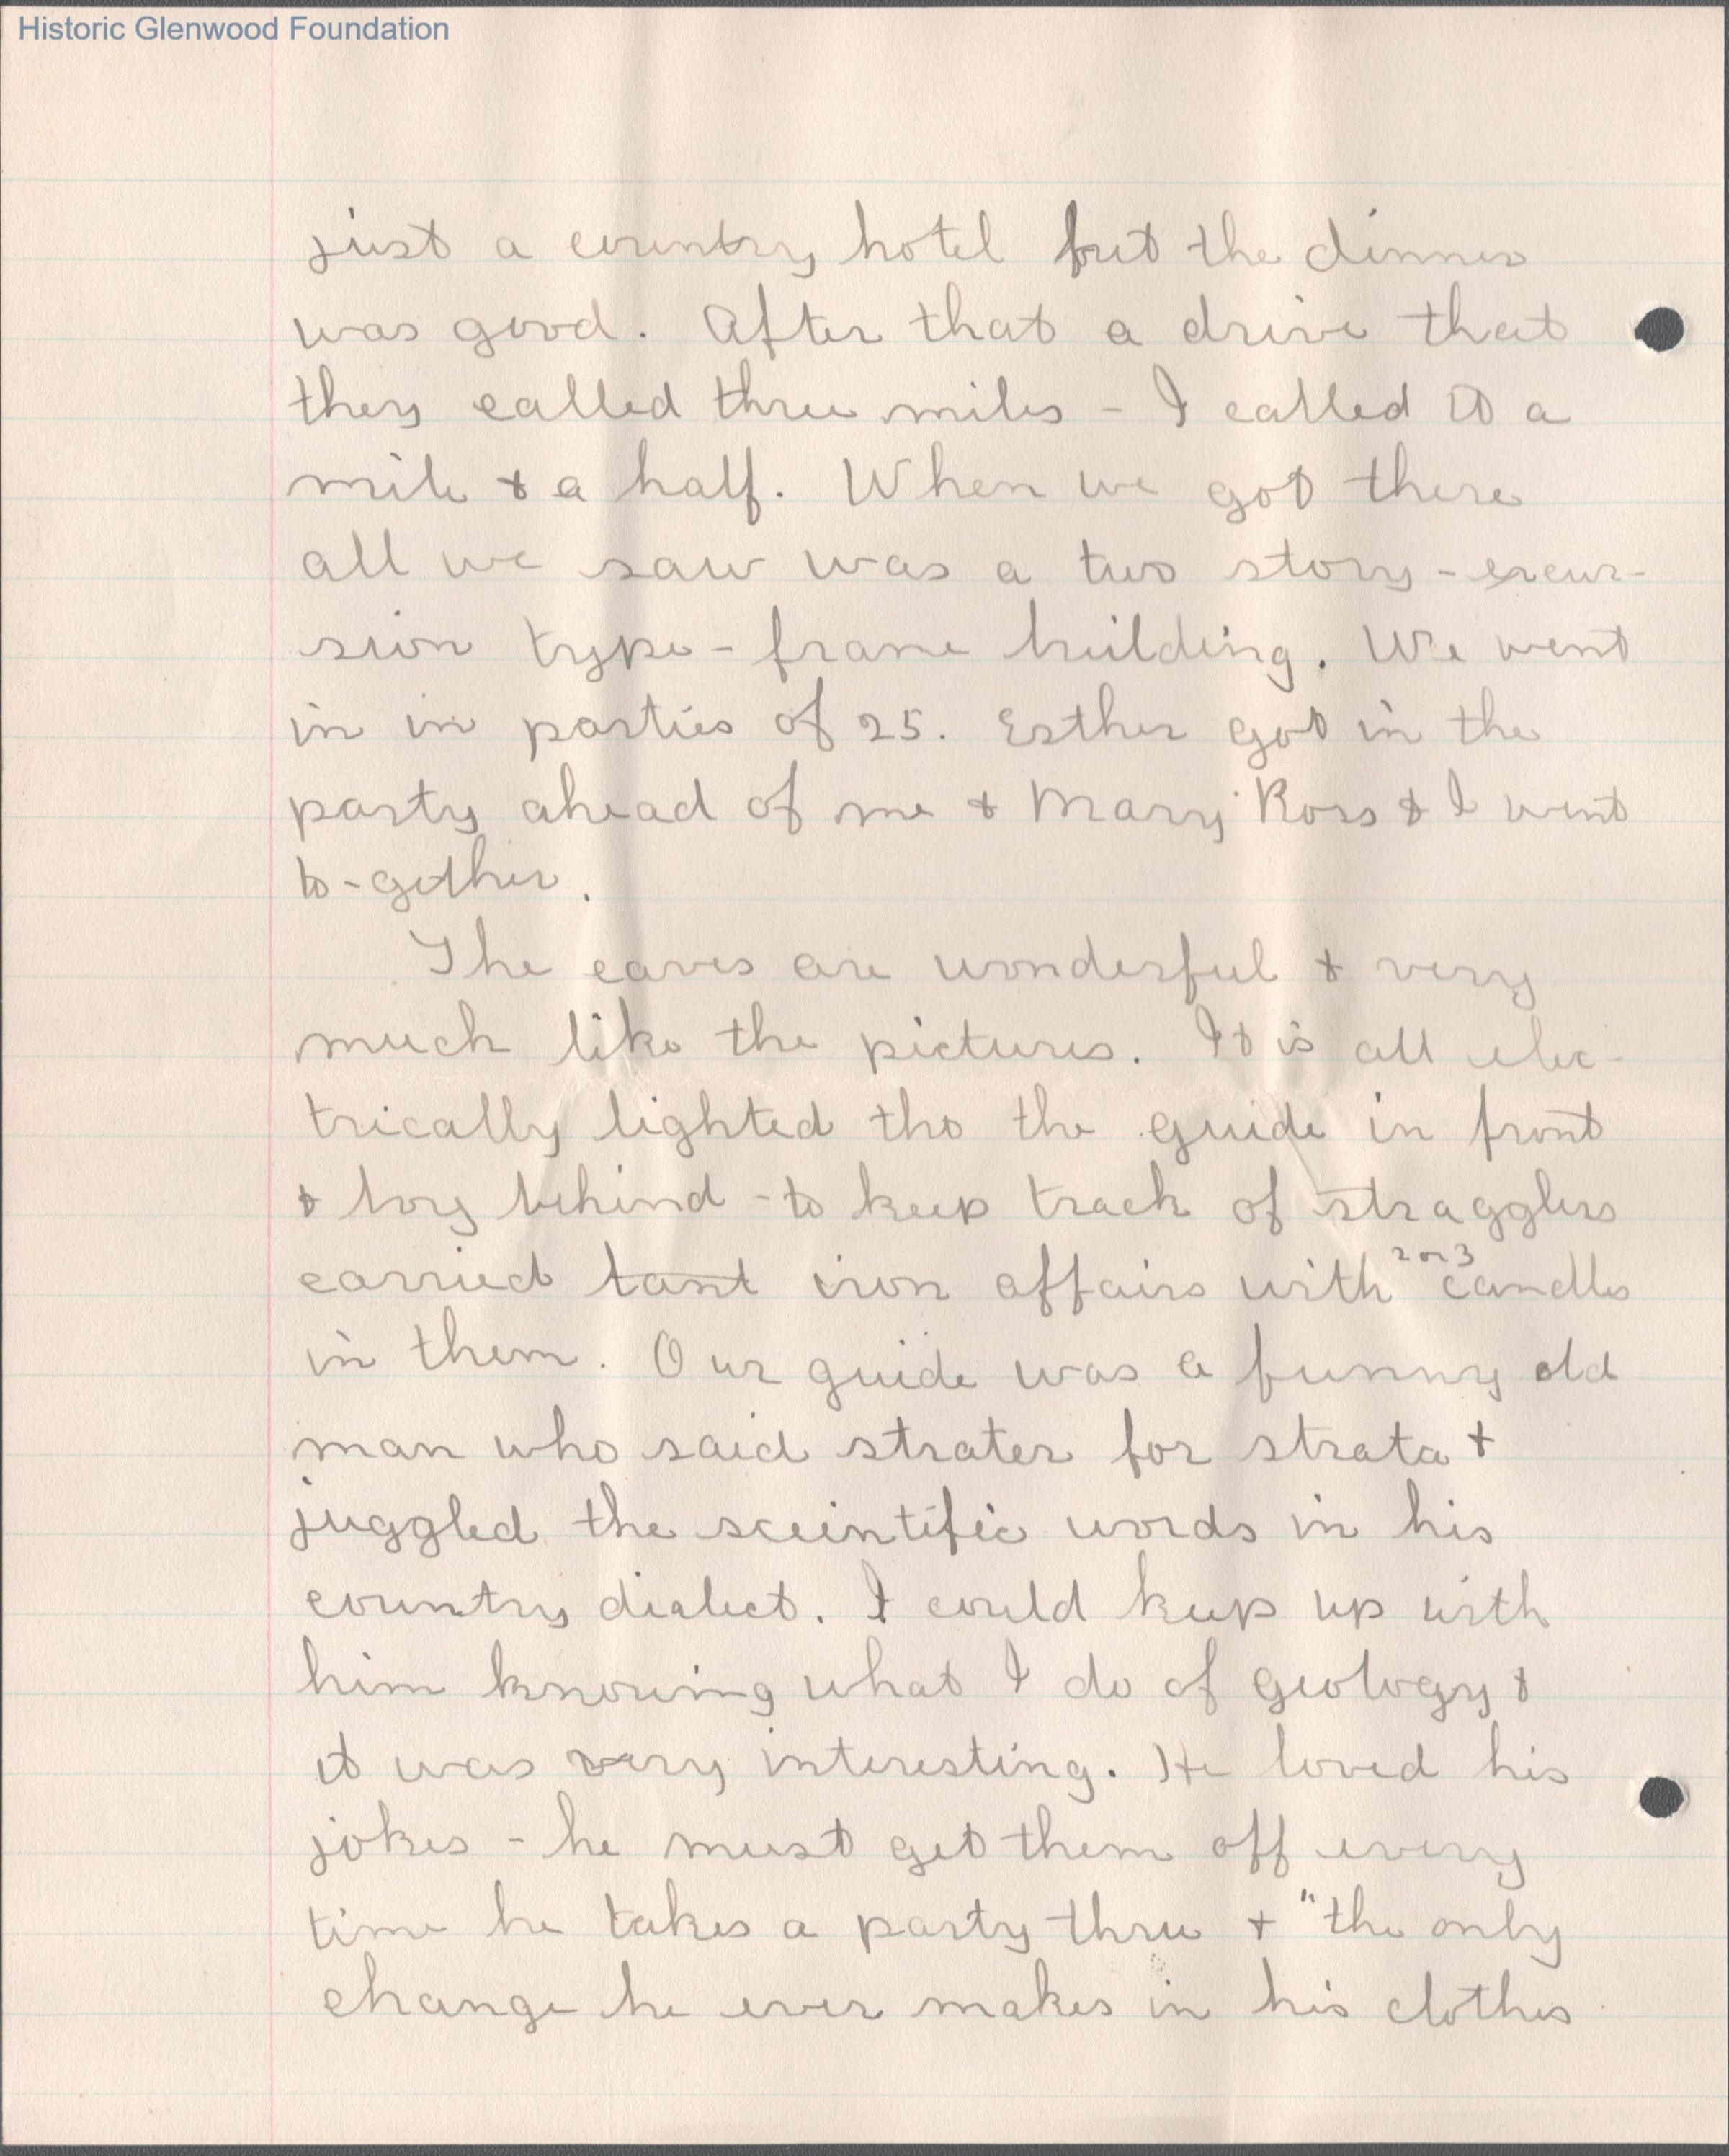 Historic Glenwood Foundation
just a country hotel but the dinner
was good. After that a drive that
they called three miles - I called it a
mile & a half. When we got there
all we saw was a two story - excur-
sion type - frame building. We went
in in parties of 25. Esther got in the
party ahead of me & Mary Ross & I went
to-gether.
The caves are wonderful & very
much like the pictures. It is all elec-
trically lighted tho the guide in front
& boy behind - to keep track of stragglers
carried tant iron affairs with 2 or 3 candles
in them. Our guide was a funny old
man who said strater for strata &
juggled the sceintific words in his
country dialect. I could keep up with
him knowing what I do of geology &
it was very interesting. He loved his
jokes - he must get them off every
time he takes a party thru & "the only
change he ever makes in his clothes